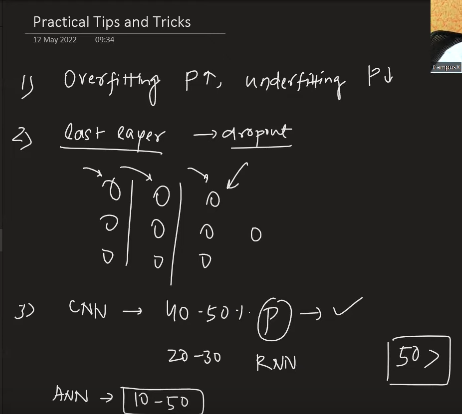 Practical Tips and Tricks
12 May 2022 09:34
1) Overfitting P↑, underfitting P↓
2) last layer → dropout
3) CNN → 40-50% P → ✓
20-30 RNN
50 >
ANN → 10-50